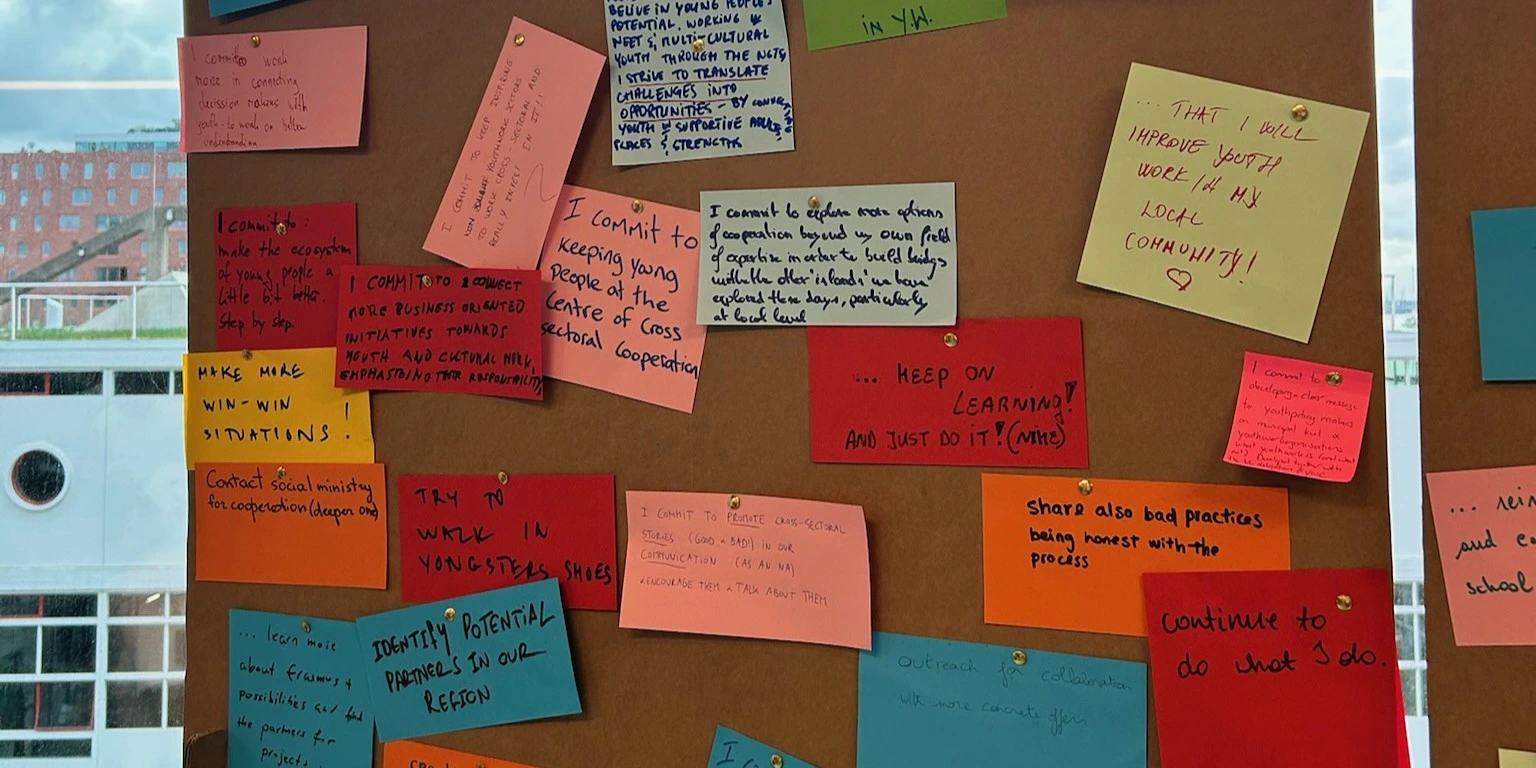 I commit to work
more in connecting
decission makers with
youth - to work on better
understanding
I COMMIT TO KEEP INSPIRING
NON YOUTHWORK SECTORS
TO WORK CROSS-SECTORAL AND
REALLY INVEST IN IT!!
BELIVE IN YOUNG PEOPLE'S
POTENTIAL. WORKING W
NEET & MULTI-CULTURAL
YOUTH THROUGH THE NGTs
I STRIVE TO TRANSLATE
CHALLENGES INTO
OPORTUNITIES - BY CONNECTING
YOUTH W SUPPORTIVE ADULTS,
PLACES & STRENGTHS
IN Y.W.
... THAT I WILL
IMPROVE YOUTH
WORK IN MY
LOCAL
COMMUNITY!
I commit to:
make the ecosystem
of young people a
little bit better.
Step by step.
I COMMIT TO CONNECT
MORE BUSINESS ORIENTED
INITIATIVES TOWARDS
YOUTH AND CULTURAL WORK,
EMPHASIZING THEIR RESPONSIBILITY
I commit to
keeping young
people at the
centre of cross
sectoral cooperation
I commit to explore more options
of cooperation beyond my own field
of expertise in order to build bridges
with the other 'islands' we have
explored these days, particularly
at local level
MAKE MORE
WIN-WIN
SITUATIONS !
... KEEP ON
LEARNING!
AND JUST DO IT! (NIKE)
I commit to
developing a clear message
to youthpolicy makers
on municipal level &
youthwork organisations
what youthwork is (and what
not).
Contact social ministry
for cooperation (deeper one)
TRY TO
WALK IN
YONGSTERS SHOES
I COMMIT TO PROMOTE CROSS-SECTORAL
STORIES (GOOD & BAD!) IN OUR
COMMUNICATION (AS AN NA)
& ENCOURAGE THEM & TALK ABOUT THEM
Share also bad practices
being honest with the
process
continue to
do what I do.
... learn more
about Erasmus +
possibilities and find
the partners for
projects
IDENTIFY POTENTIAL
PARTNERS IN OUR
REGION
Outreach for collaboration
with more concrete offers
I
...
and
school